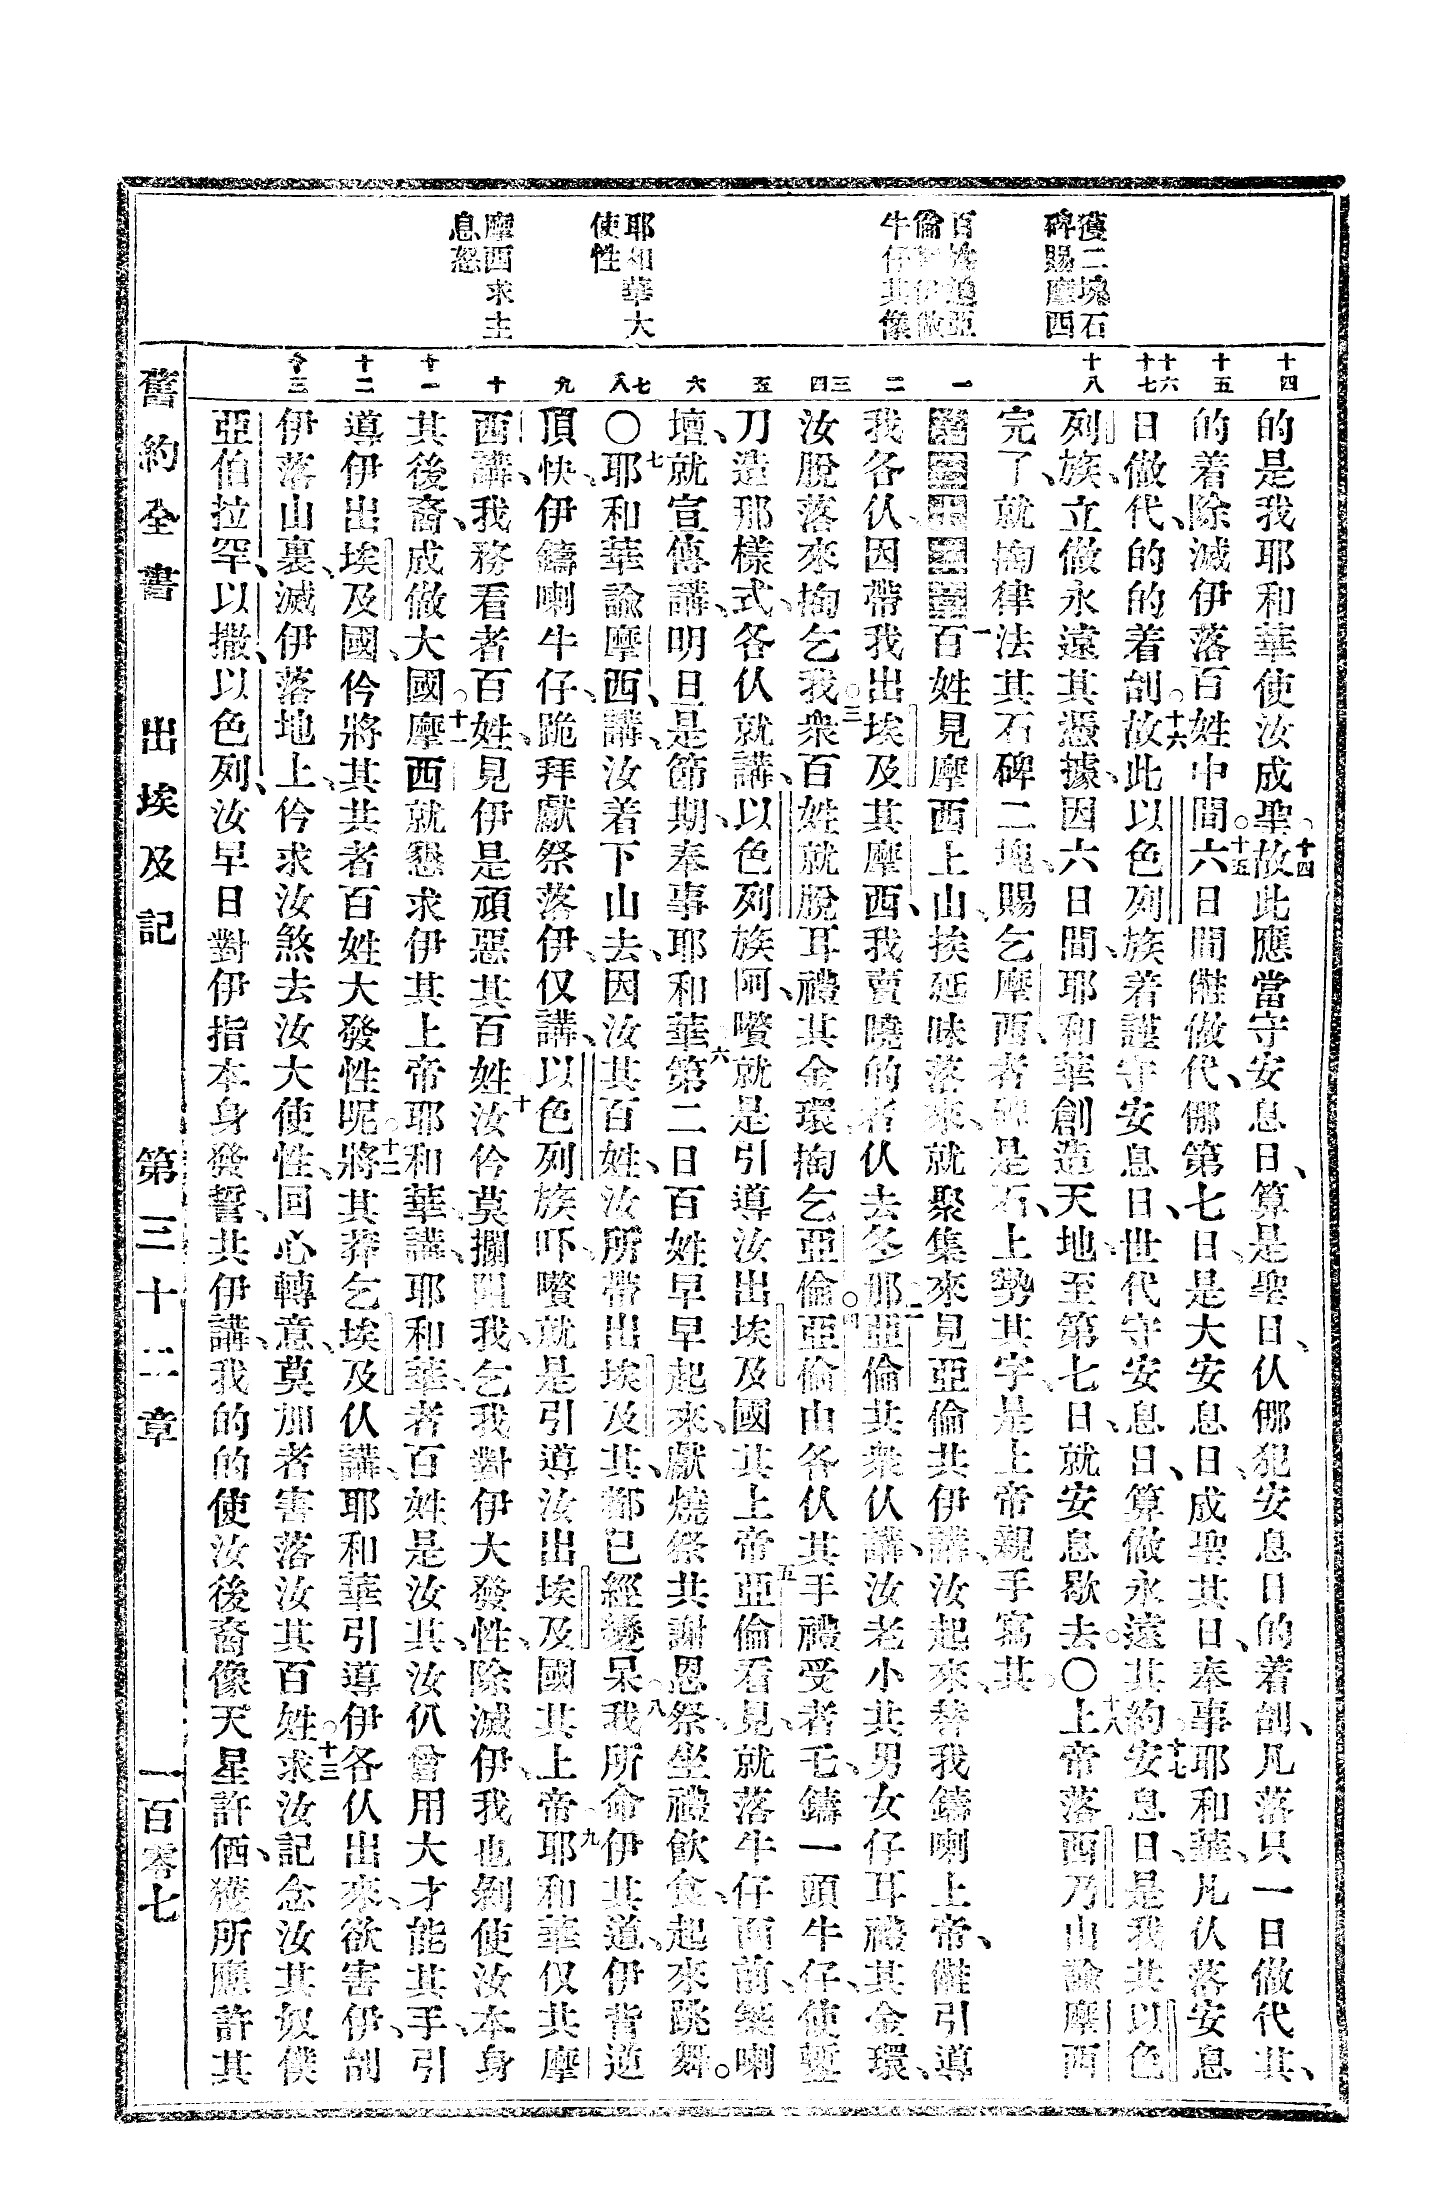 獲二塊石
碑賜摩西
牛仔其像
耶和華大
使性
摩西求主
息怒
十四
十五
十六
十七
十八
一
二
三
四
五
六
七
八
九
十
十一
十二
十三
的是我耶和華使汝成聖。十四故此應當守安息日、算是聖日、仫㑚犯安息日的着剖、凡落只一日做代其、
的着除滅伊落百姓中間。十五六日間㒰做代、㑚第七日、是大安息日、成聖其日、奉事耶和華、凡仫落安息
日做代、的的着剖。十六故此以色列族着謹守安息日、世代守安息日、算做永遠其約。十七安息日、是我共以色
列族、立做永遠其憑據、因六日間、耶和華創造天地、至第七日、就安息歇去。〇十八上帝落西乃山諭摩西
完了、就掏律法其石碑二塊、賜乞摩西、者碑是石、上勢其字、是上帝親手寫其。
一百姓見摩西上山、挨延昧落來、就聚集來見亞倫共伊講、汝起來、替我鑄喇上帝、㒰引導
我各仫、因帶我出埃及其摩西、我賣曉的者仫去冬那。二亞倫共衆仫講、汝老小共男女仔耳禮其金環、
汝脫落來掏乞我。三衆百姓就脫耳禮其金環、掏乞亞倫。四亞倫由各仫其手禮受者乇、鑄一頭牛仔、使鏨
刀造那樣式、各仫就講、以色列族阿、囋就是引導汝出埃及國其上帝。五亞倫看見、就落牛仔面前、築喇
壇、就宣傳講、明旦是節期、奉事耶和華。六第二日百姓早早起來、獻燒祭共謝恩祭、坐禮飲食、起來跳舞。
〇七耶和華諭摩西、講、汝着下山去、因汝其百姓、汝所帶出埃及其、都已經變呆。八我所命伊其道、伊背逆
頂快、伊鑄喇牛仔、跪拜獻祭落伊、仅講、以色列族吓、囋就是引導汝出埃及國其上帝。九耶和華仅共摩
西講、我務看者百姓、見伊是頑惡其百姓。十汝仱莫攔阻我、乞我對伊大發性、除滅伊、我也剿使汝本身
其後裔、成做大國。十一摩西就懇求伊其上帝耶和華、講、耶和華、者百姓是汝其、汝仈曾用大才能其手、引
導伊出埃及國、仱將其共者百姓大發性呢。十二將其莽乞埃及仫講、耶和華引導伊各仫出來、欲害伊、剖
伊落山裏、滅伊落地上、仱求汝煞去汝大使性、回心轉意、莫加者害落汝其百姓。十三求汝記念汝其奴僕
亞伯拉罕、以撒、以色列、汝早日對伊指本身發誓、共伊講、我的的使汝後裔像天星許価、獲所應許其
舊約全書　出埃及記　第三十二章　一百零七